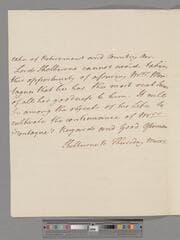 take of Retirement and Country Air.
Lord Shelburne cannot avoid taking
this opportunity of assuring Mrs. Mon-
tagu that he has the most real sense
of all her goodness to him. It will
be among the objects of his Life to
cultivate the continuance of Mrs.
Montagu's Regards and Good Opinion
Shelburne H. Thursday